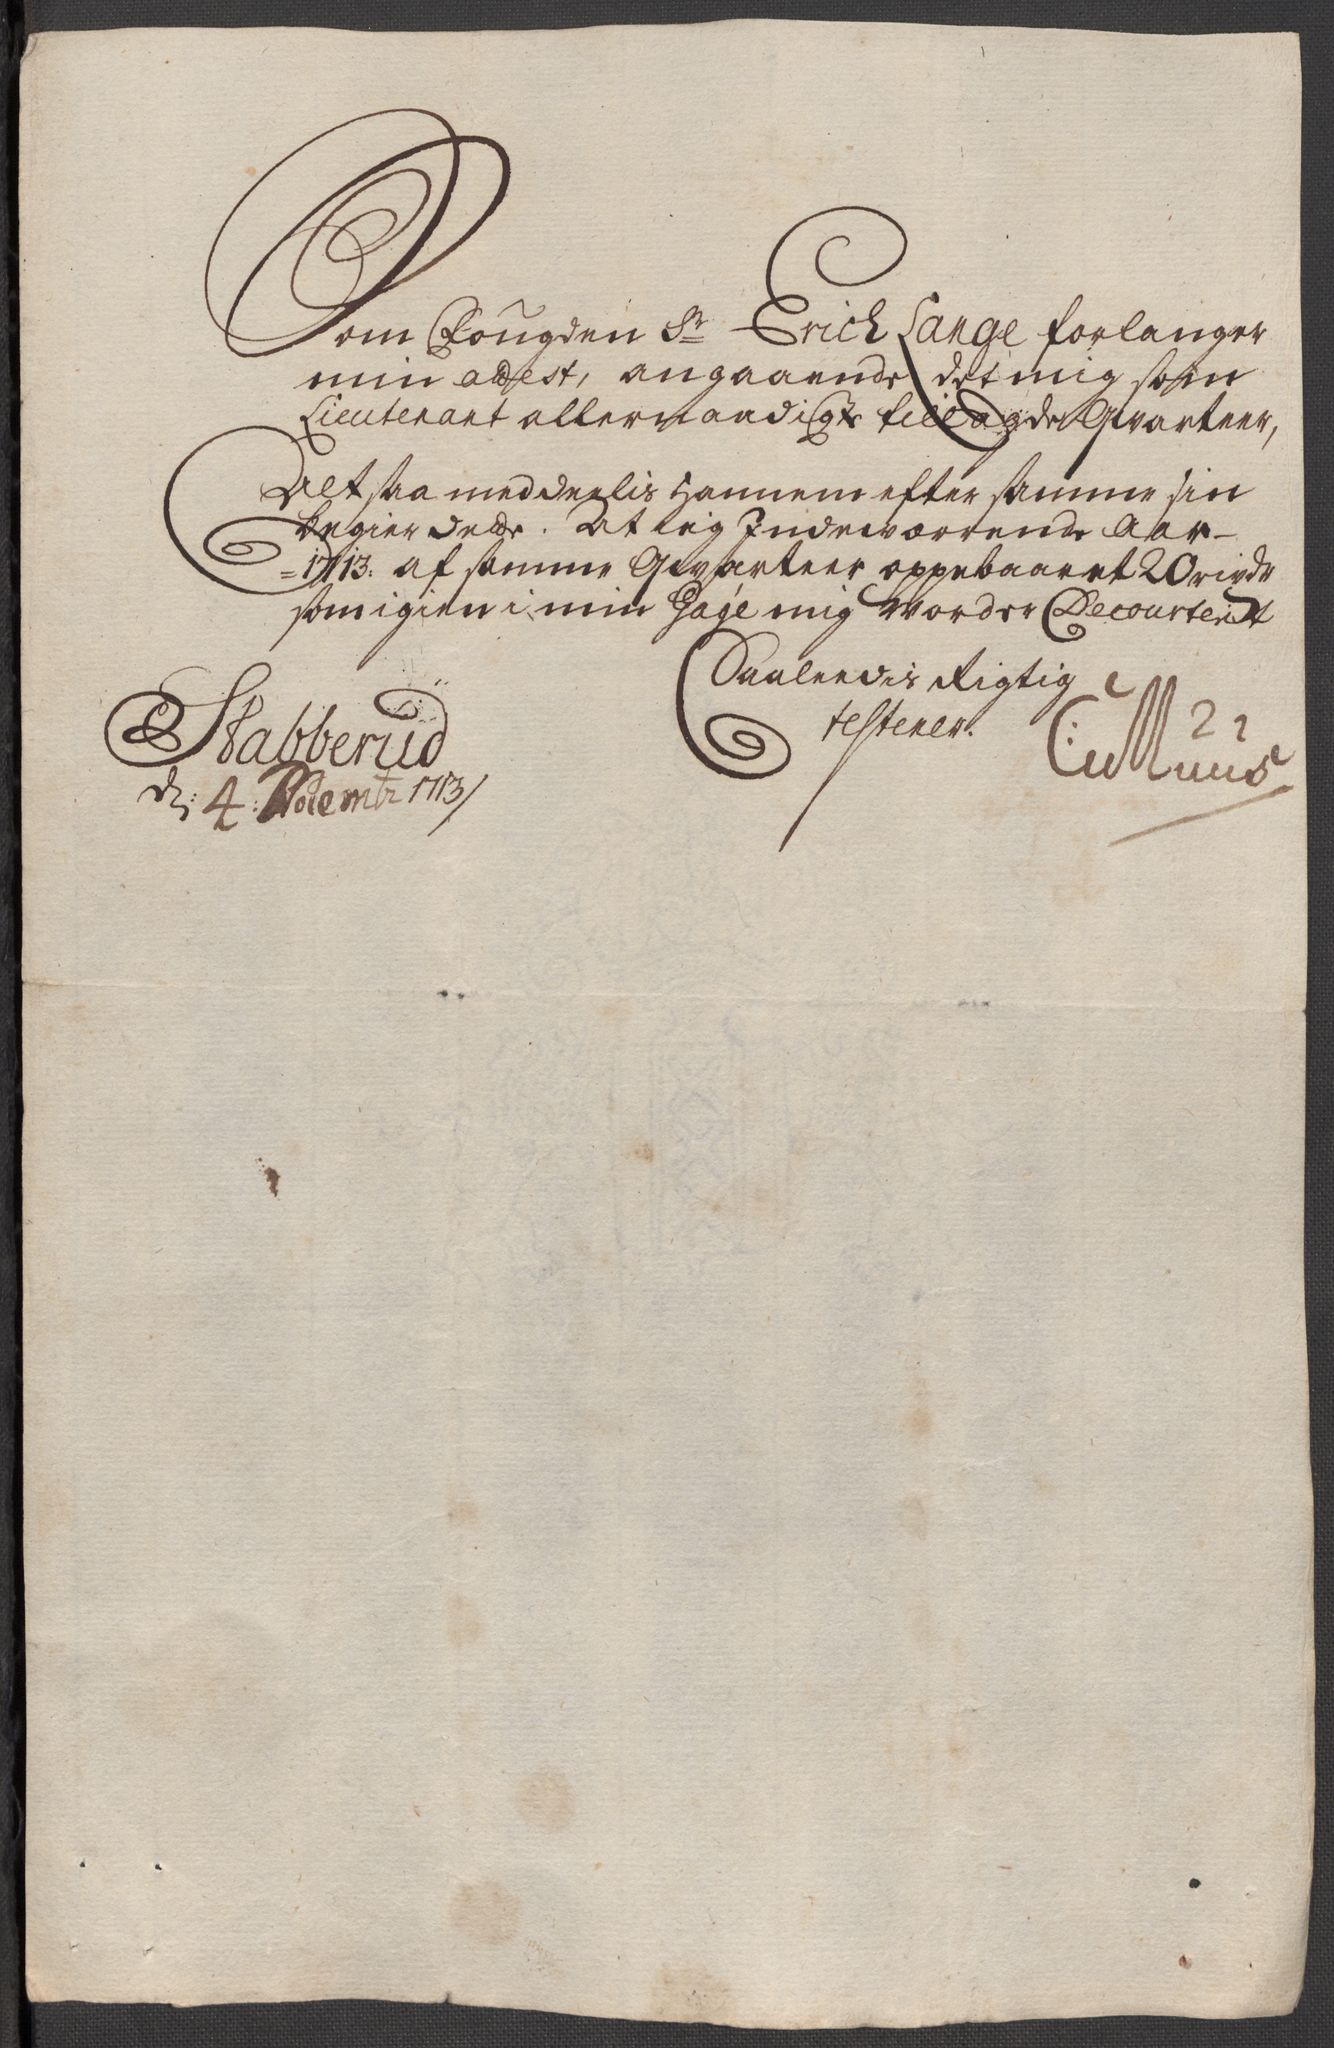 Som Fougden Sr Erich Lange forlanger
min attest, angaaende det mig som
Lieutenant allernaadigste tillagde Qvarteer,
Alt saa meddeelis hannem efter samme sin
begier dette. At ieg Indeværende Aar-
=1713: af samme Qvarteer oppebaaret 20 rixdr
som igien i min Gage mig vorder Decourteret
Saaleedis Rigtig
testerer.
Stabberud
d: 4: Novembr 1713/